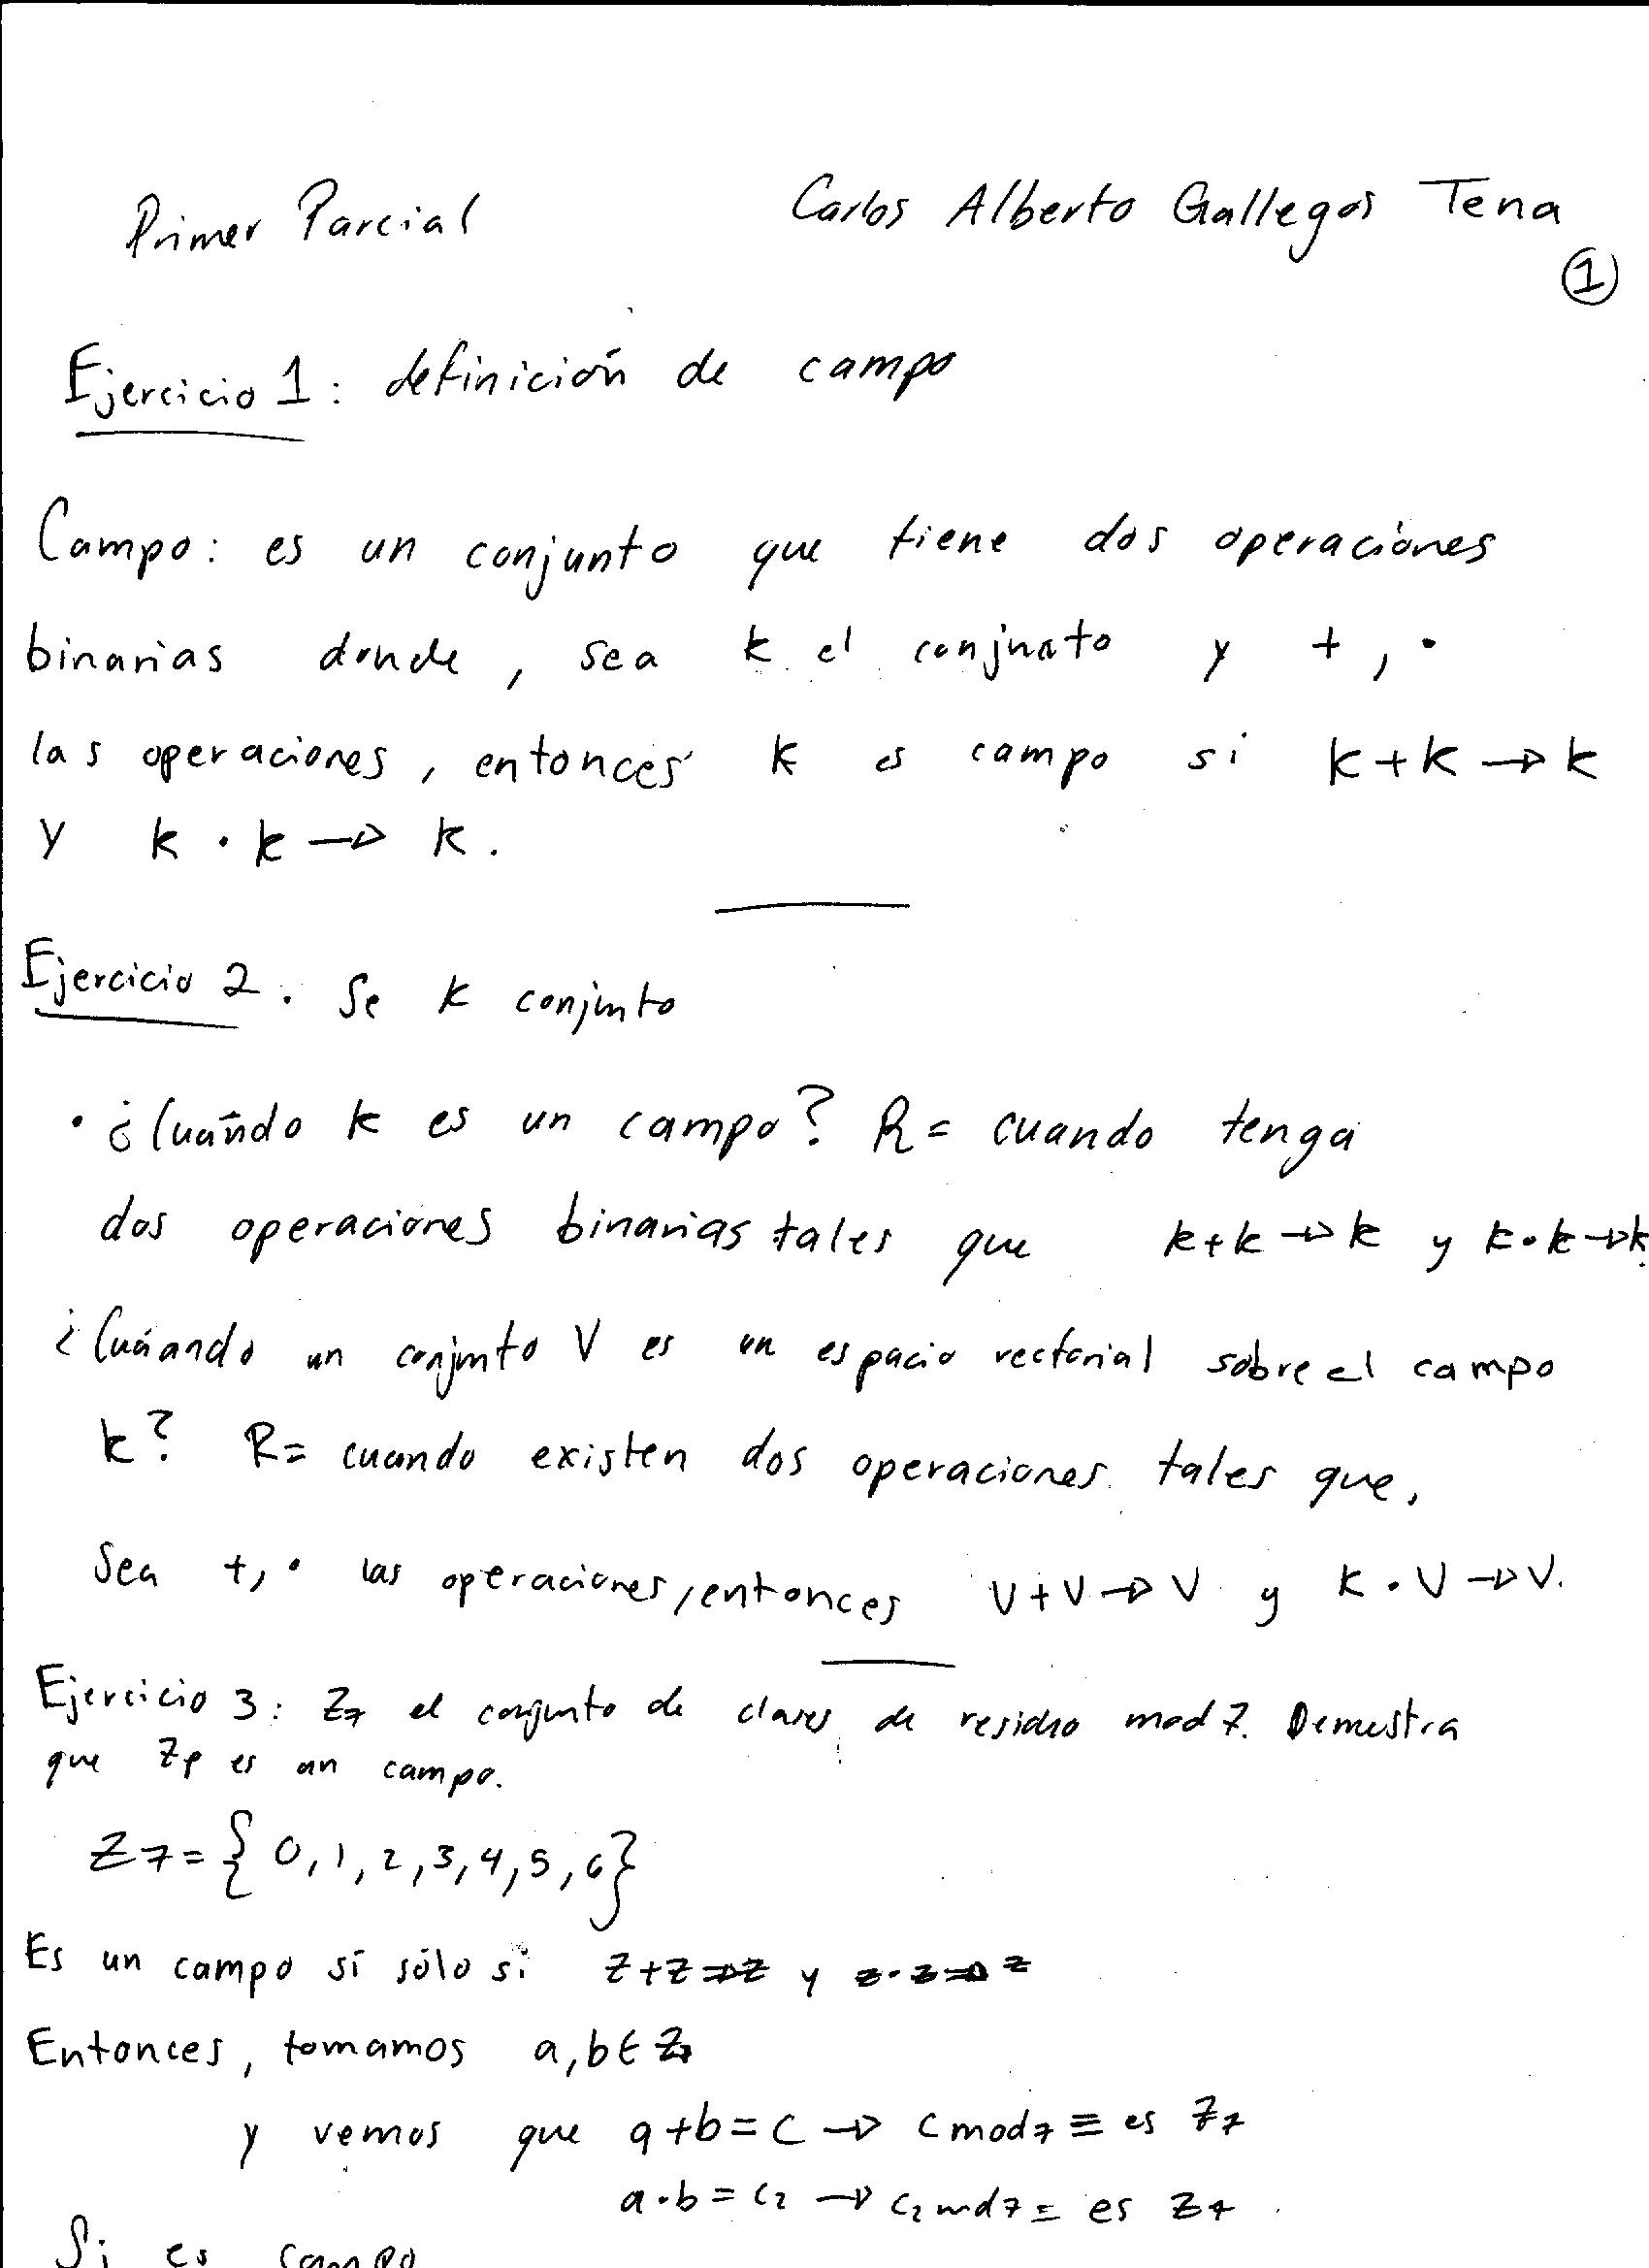 Primer Parcial Carlos Alberto Gallegos Tena
①
Ejercicio 1: definición de campo
Campo: es un conjunto que tiene dos operaciones
binarias donde, sea k el conjnato y +, •
las operaciones, entonces k es campo si k+k → k
y k • k → k.
Ejercicio 2. Se k conjunto
• ¿Cuándo k es un campo? R= cuando tenga
dos operaciones binarias tales que k+k → k y k•k→k.
¿Cuáando un conjunto V es un espacio vectorial sobre el campo
k? R= cuando existen dos operaciones tales que,
Sea +, • las operaciones, entonces V+V→V y k•V→V.
Ejercicio 3: Z7 el conjunto de clases de residuo mod 7. Demuestra
que Zp es un campo.
Z7 = { 0, 1, 2, 3, 4, 5, 6}
Es un campo sí sólo si Z+Z⇒Z y Z•Z⇒Z
Entonces, tomamos a, b ∈ Z7
y vemos que a+b=c → c mod7 ≡ es Z7
a•b=c2 → c2 mod7 = es Z7
Si es campo